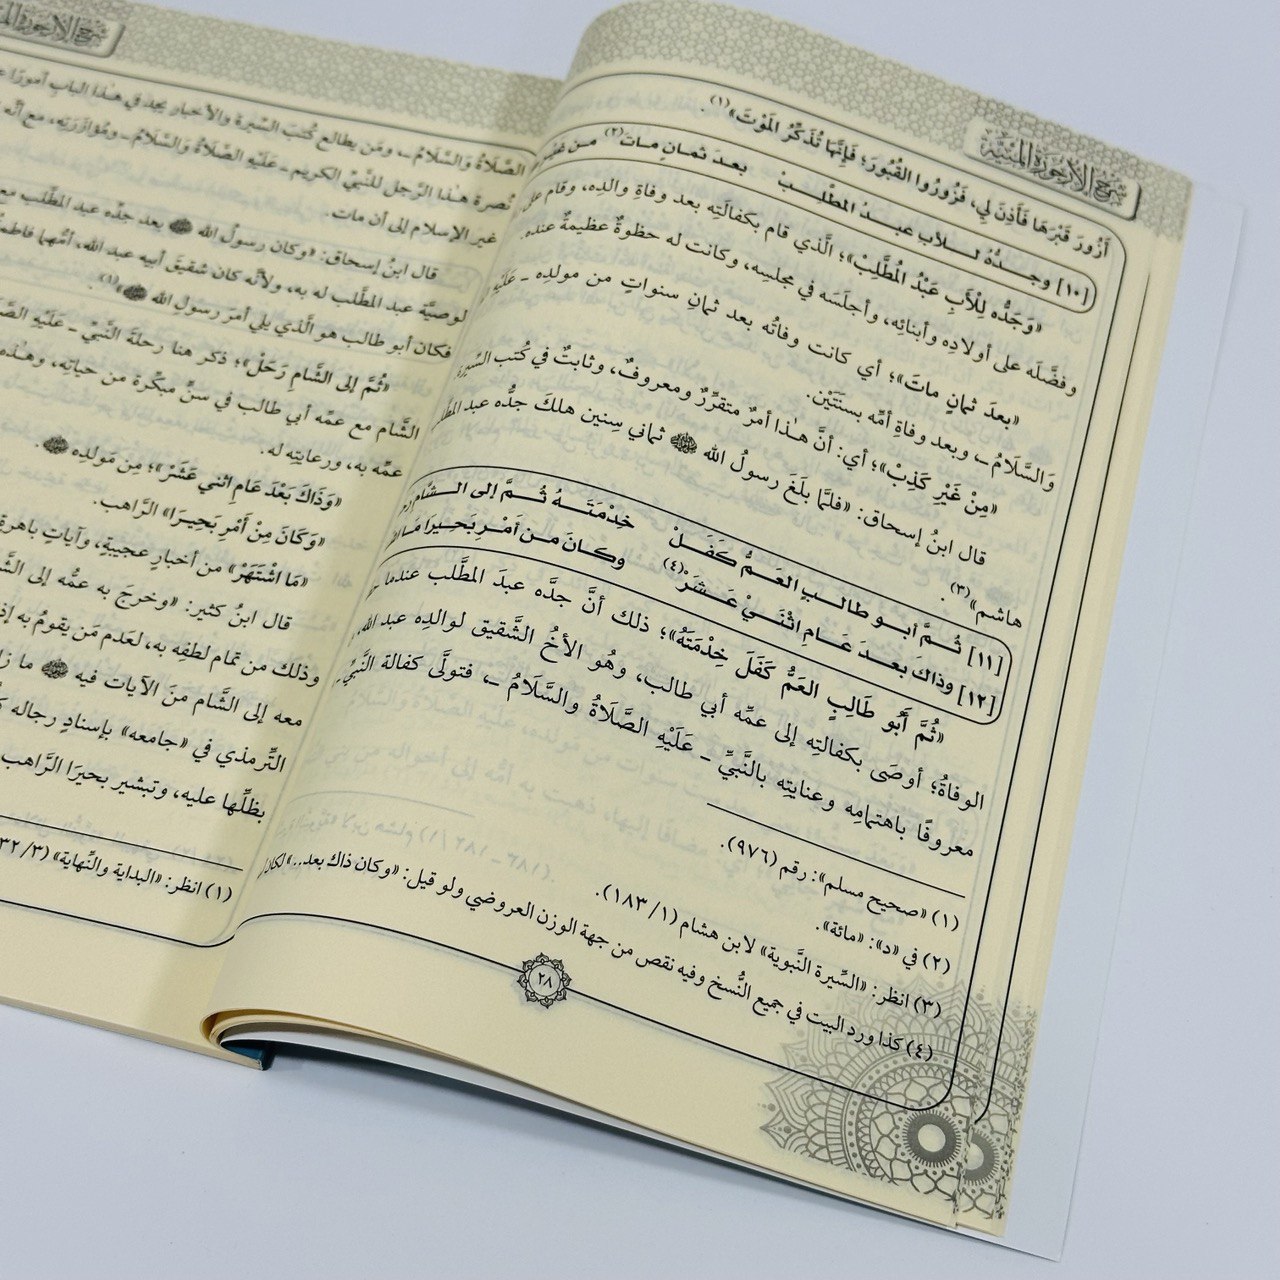 شرح الأرجوزة الميئية
أَزُورَ قَبْرَهَا فَأَذِنَ لِي، فَزُورُوا القُبُورَ؛ فَإِنَّهَا تُذَكِّرُ المَوْتَ»(١).
[١٠] وجدُّهُ للأب عبدُ المطَّلِبْ بعدَ ثمانٍ ماتَ(٢) من غيرِ
«وَجَدُّه لِلْأَبِ عَبْدُ الْمُطَّلِبْ»؛ الَّذي قام بكفالَتِه بعد وفاةِ والدِه، وقام على
وفضَّلَه على أولادِه وأبنائِه، وأجلَسَه في مجلسِه، وكانت له حظوةٌ عظيمةٌ عنده.
«بعدَ ثمانٍ ماتَ»؛ أي كانت وفاتُه بعد ثمانِ سنواتٍ من مولدِه ـ عَلَيْهِ
وَالسَّلَامُ ـ، وبعد وفاةِ أمِّه بسنتَيْن.
«مِنْ غَيْرِ كَذِبْ»؛ أي: أنَّ هـٰذا أمرٌ متقرِّرٌ ومعروفٌ، وثابتٌ في كُتب السِّيرة
قال ابنُ إسحاق: «فلمَّا بلَغَ رسولُ الله ﷺ ثماني سِنين هلكَ جدُّه عبد المطَّلب
هاشم»(٣).
[١١] ثُمَّ أبو طالبٍ العَمُّ كَفَلْ خِدْمَتَهُ ثُمَّ إلى الشَّامِ
[١٢] وذاكَ بعدَ عَامِ اثْنَيْ عَشَرْ(٤) وكانَ من أَمْرِ بَحِيرا مَا
«ثُمَّ أَبُو طَالِبٍ العَمُّ كَفَلَ خِدْمَتَهُ»؛ ذلك أنَّ جدَّه عبدَ المطَّلب عندما
الوفاةُ؛ أوصَى بكفالتِه إلى عمِّه أبي طالب، وهُو الأخُ الشَّقيق لوالدِه عبد الله،
معروفًا باهتمامِه وعنايتِه بالنَّبيِّ ـ عَلَيْهِ الصَّلَاةُ والسَّلَامُ ـ، فتولَّى كفالة النَّبيِّ
(١) «صحيح مسلم»: رقم (٩٧٦).
(٢) في «د»: «مائة».
(٣) انظر: «السِّيرة النَّبوية» لابن هشام (١/ ١٨٣).
(٤) كذا ورد البيت في جميع النُّسخ وفيه نقص من جهة الوزن العروضي ولو قيل: «وكان ذاك بعد..» لكان
٢٨
الصَّلاةُ وَالسَّلَامُ ـ، ومَن يطالع كُتبَ السِّيرة والأخبار يجد في هـٰذا البابِ أمورًا
نُصرة هـٰذا الرَّجل للنَّبيِّ الكريم ـ عَلَيْهِ الصَّلَاةُ وَالسَّلَامُ ـ ومُؤازرَتِه، مع أنَّه
غير الإسلام إلى أن مات.
قال ابنُ إسحاق: «وكان رسولُ الله ﷺ بعد جدِّه عبد المطَّلب مع
لوصيَّة عبد المطَّلب له به، ولأنَّه كان شقيقَ أبيه عبد الله، أمُّهما فاطمة
فكان أبو طالب هو الَّذي يلي أمرَ رسول الله ﷺ»(١).
«ثُمَّ إلى الشَّامِ رَحَلْ»؛ ذكر هنا رحلةَ النَّبيِّ ـ عَلَيْهِ
الشَّام مع عمِّه أبي طالب في سنٍّ مبكِّرة من حياتِه، وهـٰذه
عمِّه به، ورعايتِه له.
«وَذَاكَ بَعْدَ عَامِ اثْنَي عَشَرْ»؛ مِن مَولدِه ﷺ.
«وَكَانَ مِنْ أَمْرِ بَحِيرَا» الرَّاهب.
«مَا اشْتَهَرْ» من أخبارٍ عجيبةٍ، وآياتٍ باهرة
قال ابنُ كثير: «وخرجَ به عمُّه إلى
وذلك من تمام لطفِه به، لعَدم مَن يقومُ به
معه إلى الشَّام منَ الآيات فيه ﷺ ما
التِّرمذي في «جامعه» بإسنادٍ رجاله
بظلِّها عليه، وتبشير بحيرَا الرَّاهب
(١) انظر: «البداية والنِّهاية» (٣/